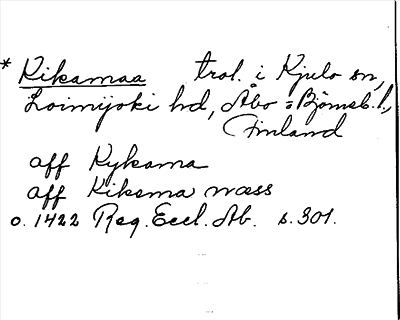 * Kikamaa trol. i Kjulo sn,
Loimijoki hd, Åbo = Björneb. l.,
Finland
aff Kykama
aff Kikema næss
o. 1422 Reg. Eccl. Ab. s. 301.